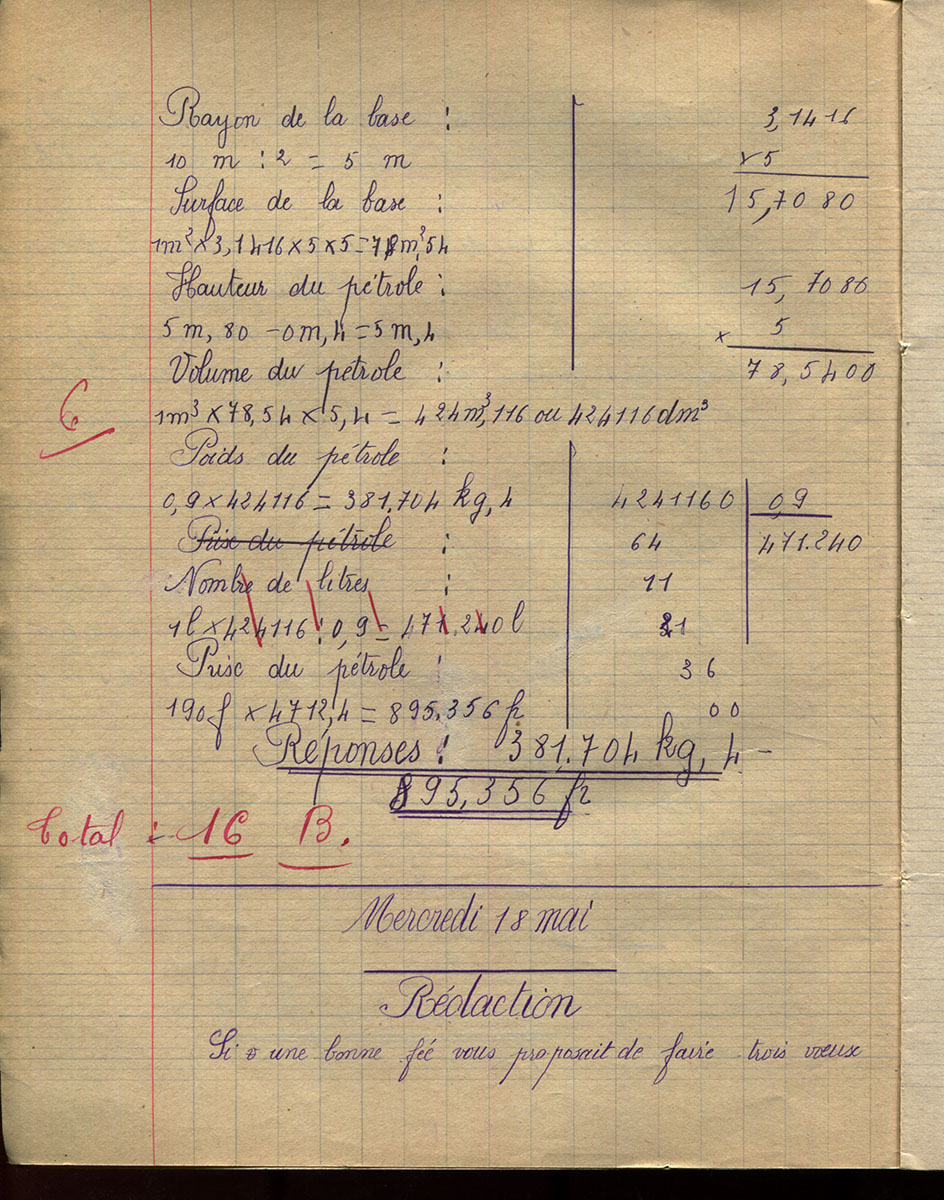 Rayon de la base :
3,1416
10 m : 2 = 5 m
x 5
Surface de la base :
15,7080
1m² x 3,1416 x 5 x 5 = 78m²,54
Hauteur du pétrole :
15,7080
5 m, 80 - 0m, 4 = 5 m, 4
x 5
Volume du pétrole :
78,5400
6
1m³ x 78,54 x 5,4 = 424m³,116 ou 424116dm³
Poids du pétrole :
0,9 x 424116 = 381.704 kg, 4
4241160 0,9
Prix du pétrole :
64 471.240
Nombre de litres :
11
1l x 424116 : 0,9 = 471.240l
21
Prix du pétrole :
36
190f x 4712,4 = 895.356 fr
00
Réponses : 381.704 kg, 4 -
895,356 fr
Total : 16 B.
Mercredi 18 mai
Rédaction
Si une bonne fée vous proposait de faire trois vœux